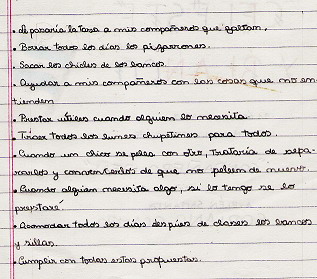 • Le pasaría la tarea a mis compañeros que faltan.
• Borrar todos los días los pizarrones.
• Sacar los chicles de los bancos
• Ayudar a mis compañeros con las cosas que no en-
tienden
• Prestar útiles cuando alguien lo necesita
• Traer todos los lunes chupetines para todos.
• Cuando un chico se pelea con otro, trataría de sepa-
rarlos y convencerlos de que no peleen de nuevo.
• Cuando alguien necesita algo, si lo tengo se lo
prestaré
• Acomodar todos los días después de clases los bancos
y sillas.
• Cumplir con todas estas propuestas.